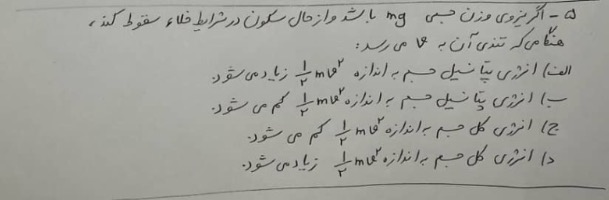 ۵- اگر نیروی وزن جسمی mg باشد و از حال سکون در شرایط خلاء سقوط کند،
هنگامی که تندی آن به v می رسد:
الف) انرژی پتانسیل جسم به اندازه ½mv² زیاد می شود.
ب) انرژی پتانسیل جسم به اندازه ½mv² کم می شود.
ج) انرژی کل جسم به اندازه ½mv² کم می شود.
د) انرژی کل جسم به اندازه ½mv² زیاد می شود.